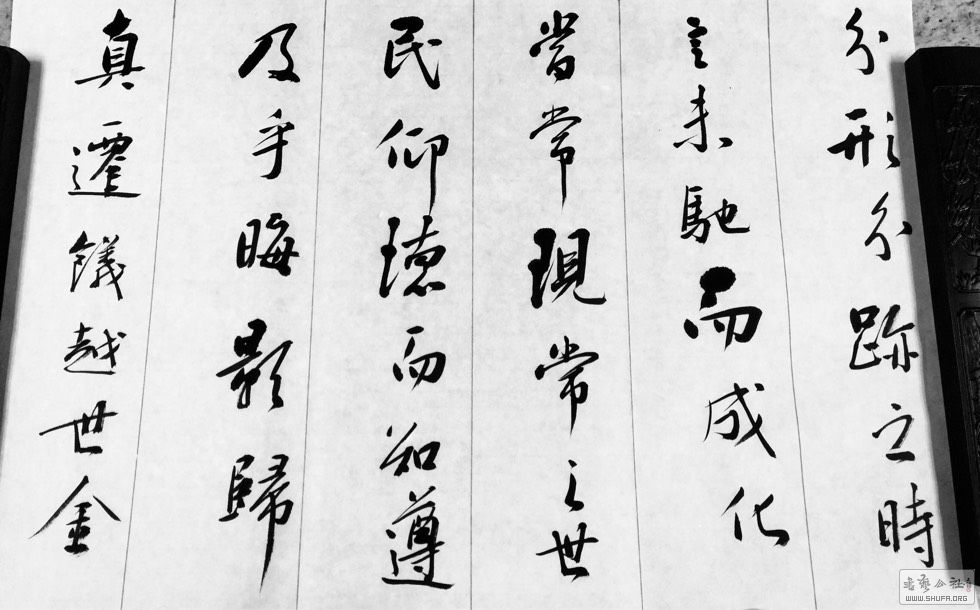 分形分跡之時
言未馳而成化
當常現常之世
民仰德而知遵
及乎晦影歸
真遷儀越世金
書法公社
WWW.SHUFA.ORG